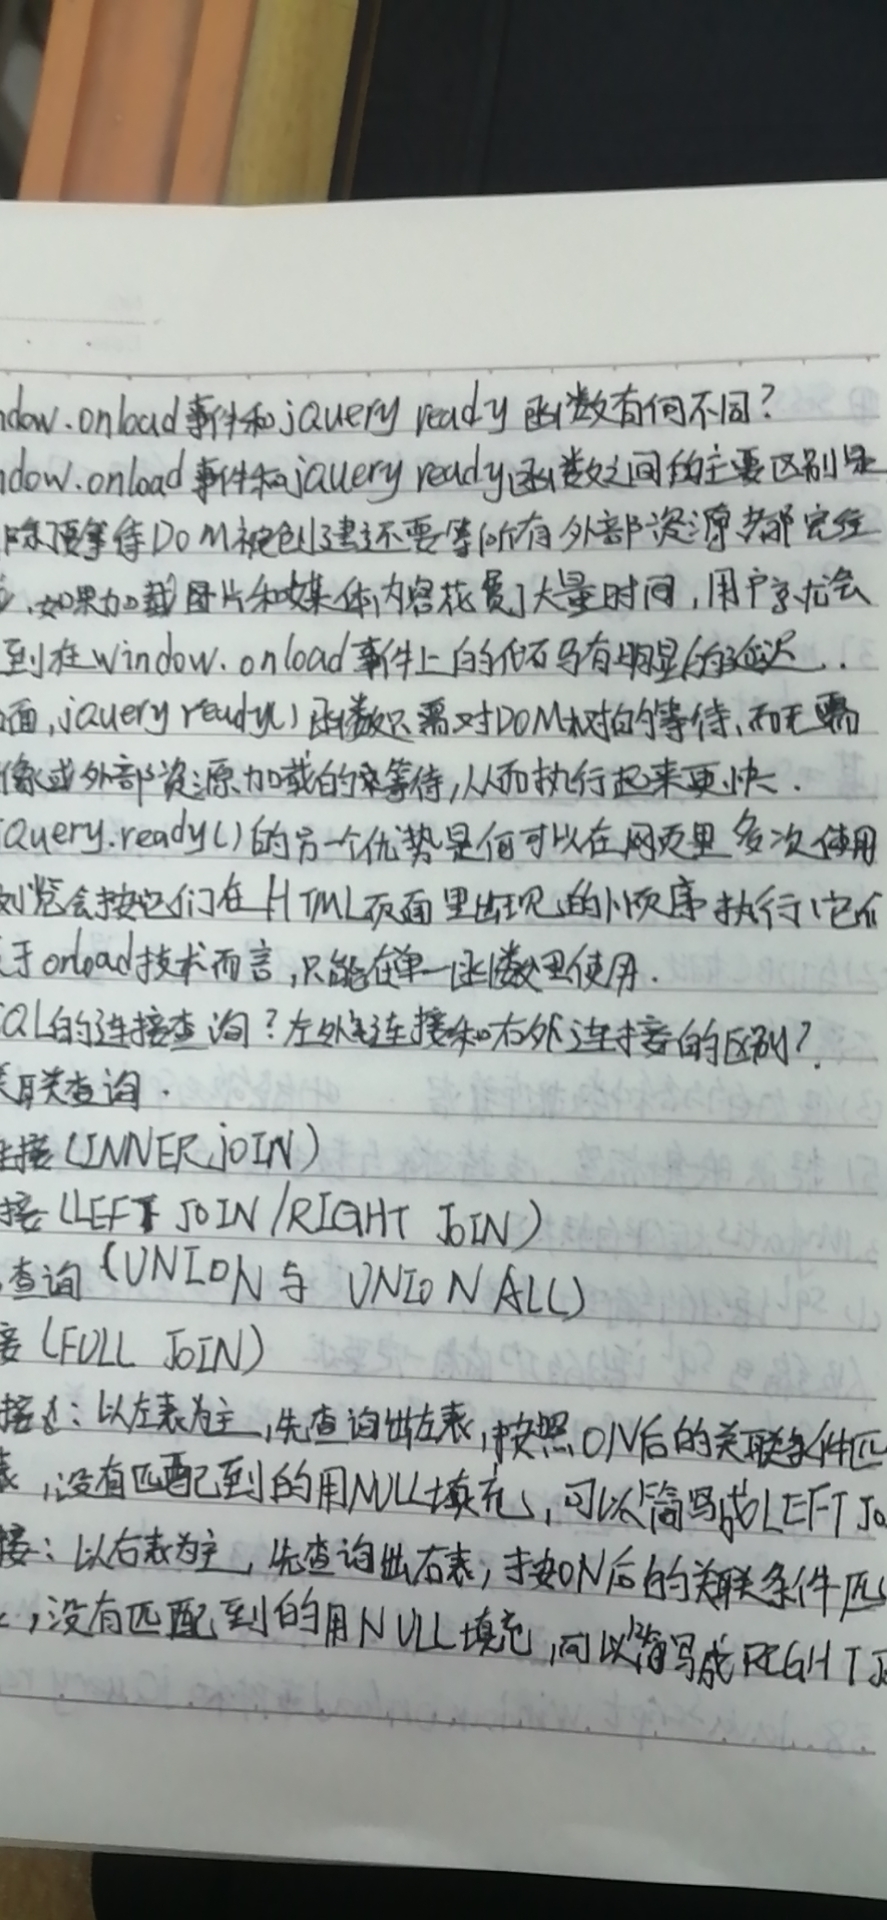 ndow.onload事件和jQuery ready 函数有何不同?
ndow.onload 事件和jquery ready函数之间的主要区别是
除了要等待DOM被创建还要等所有外部资源都完全
,如果加载图片和媒体内容花费了大量时间,用户就会
到在window.onload事件上的代码有明显的延迟.
面,jquery ready()函数只需对DOM树的等待,而无需
像或外部资源加载的等待,从而执行起来更快.
Query.ready()的另一个优势是你可以在网页里多次使用
浏览会按它们在HTML页面里出现的顺序执行它们
于onload技术而言,只能在单一函数里使用.
QL的连接查询?左外连接和右外连接的区别?
关联查询.
连接(INNER JOIN)
接(LEFT JOIN/RIGHT JOIN)
查询(UNION与 UNION ALL)
接(FULL JOIN)
接:以左表为主,先查询出左表,按照ON后的关联条件匹
表,没有匹配到的用NULL填充,可以简写成LEFT Jo
接:以右表为主,先查询出右表,按ON后的关联条件匹
,没有匹配到的用NULL填充,可以简写成REGHT J